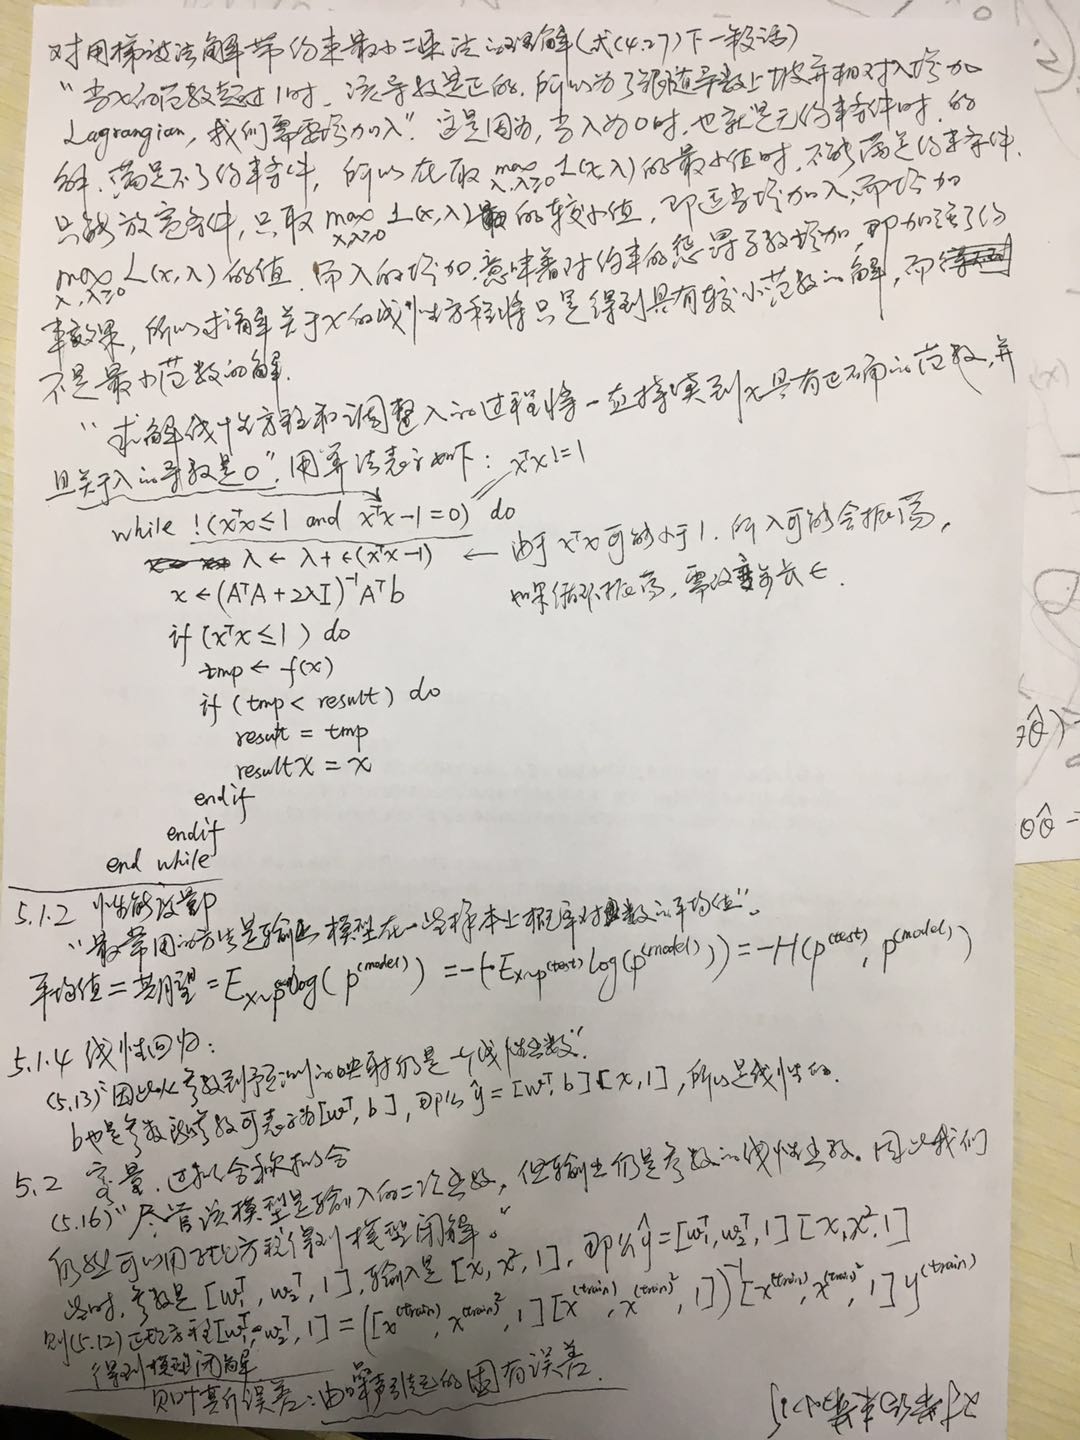 对用梯度法解带约束最小二乘法的理解(式(4.27)下一段话)
"当x的范数超过1时，该导数是正的，所以为了跟随导数上坡并相对λ增加
Lagrangian，我们需要增加λ"。这是因为，当λ为0时，也就是无约束条件时，的
解，满足不了约束条件，所以在取 max λ,λ≥0 L(x,λ)的最小值时，不能满足约束条件，
只能放宽条件，只取 max λ,λ≥0 L(x,λ) 的较小值，即适当增加λ，而增加
max λ,λ≥0 L(x,λ)的值，而λ的增加，意味着对约束的惩罚系数增加，即加强了约
束效果，所以求解关于x的线性方程将只是得到具有较小范数的解，而
不是最小范数的解.
"求解线性方程和调整λ的过程将一直持续到x具有正确的范数，并
且关于λ的导数是0"。用算法表示如下： xᵀx!=1
while !(xᵀx≤1 and xᵀx-1=0) do
λ ← λ+ϵ(xᵀx-1) ← 由于xᵀx可能小于1，所λ可能会振荡，
x ← (AᵀA+2λI)⁻¹Aᵀb 如果循环振荡，需改变步长ϵ.
if (xᵀx≤1) do
tmp ← f(x)
if (tmp < result) do
result = tmp
resultx = x
endif
endif
end while
5.1.2 性能度量P
"最常用的方法是输出模型在一些样本上概率对数的平均值"。
平均值=期望=E x~p log(p^(model)) = -(-E x~p^(test) log(p^(model))) = -H(p^(test), p^(model))
5.1.4 线性回归：
(5.13)"因此从参数到预测的映射仍是一个线性函数"。
b也是参数 参数可表示为[wᵀ,b]，即 ŷ=[wᵀ,b][x,1]，所以是线性的.
5.2 容量、过拟合和欠拟合
(5.16)"尽管该模型是输入的二次函数，但输出仍是参数的线性函数。因此我们
仍然可以用正规方程得到模型闭解。"
此时，参数是[w₁ᵀ,w₂ᵀ,1]，输入是[x,x²,1]，即 ŷ=[w₁ᵀ,w₂ᵀ,1][x,x²,1]
则(5.12)正规方程[w₁ᵀ,w₂ᵀ,1]=([x^(train),x^(train)²,1][x^(train),x^(train)²,1])⁻¹[x^(train),x^(train)²,1]y^(train)
得到模型闭解
贝叶斯误差：由噪声引起的固有误差.